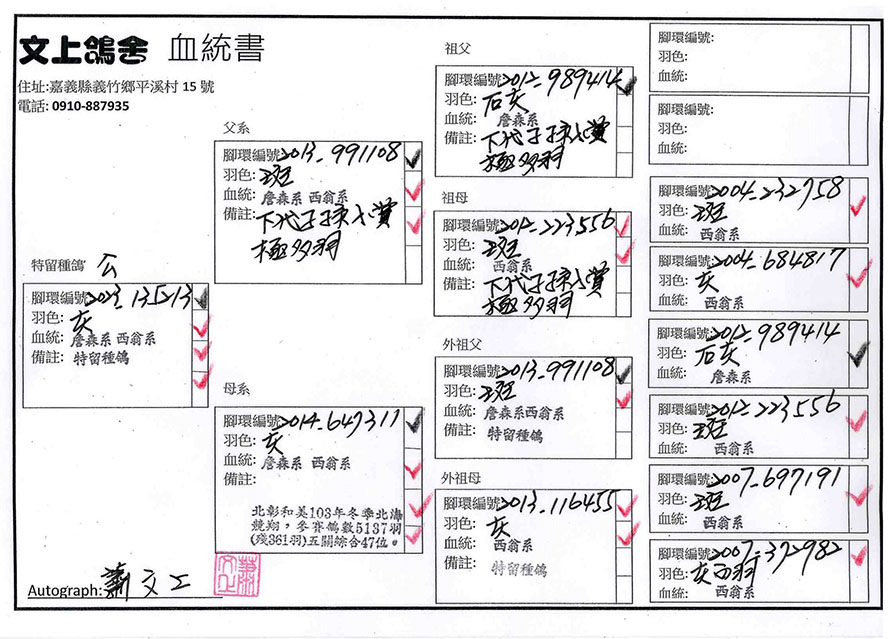 文上鴿舍 血統書
住址:嘉義縣義竹鄉平溪村 15 號
電話: 0910-887935
特留種鴿 公
腳環編號2023-135213
羽色: 灰
血統: 詹森系 西翁系
備註: 特留種鴿
父系
腳環編號2013-991108
羽色: 斑
血統: 詹森系 西翁系
備註: 下代子孫入賞
極多羽
母系
腳環編號2014-647311
羽色: 灰
血統: 詹森系 西翁系
備註:
北彰和美103年冬季北海
競翔，參賽鴿數5137羽
(殘361羽)五關綜合47位。
祖父
腳環編號2012-989414
羽色: 石灰
血統: 詹森系
備註: 下代子孫入賞
極多羽
祖母
腳環編號2012-223556
羽色: 斑
血統: 西翁系
備註: 下代子孫入賞
極多羽
外祖父
腳環編號2013-991108
羽色: 斑
血統: 詹森系西翁系
備註: 特留種鴿
外祖母
腳環編號2013-116455
羽色: 灰
血統: 西翁系
備註: 特留種鴿
腳環編號:
羽色:
血統:
腳環編號:
羽色:
血統:
腳環編號2004-232758
羽色: 斑
血統: 西翁系
腳環編號2004-684817
羽色: 灰
血統: 西翁系
腳環編號2012-989414
羽色: 石灰
血統: 詹森系
腳環編號2012-223556
羽色: 斑
血統: 西翁系
腳環編號2007-697191
羽色: 斑
血統: 西翁系
腳環編號2007-372982
羽色: 灰白羽
血統: 西翁系
Autograph: 蕭文工